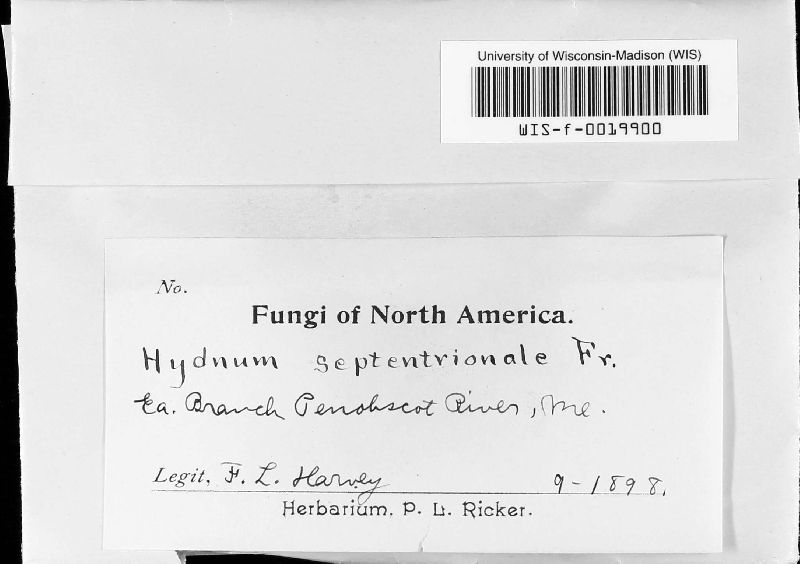 University of Wisconsin-Madison (WIS)
WIS-f-0019900
No.
Fungi of North America.
Hydnum septentrionale Fr.
Ea. Branch Penobscot River, Me.
Legit, F. L. Harvey 9-1898.
Herbarium, P. L. Ricker.